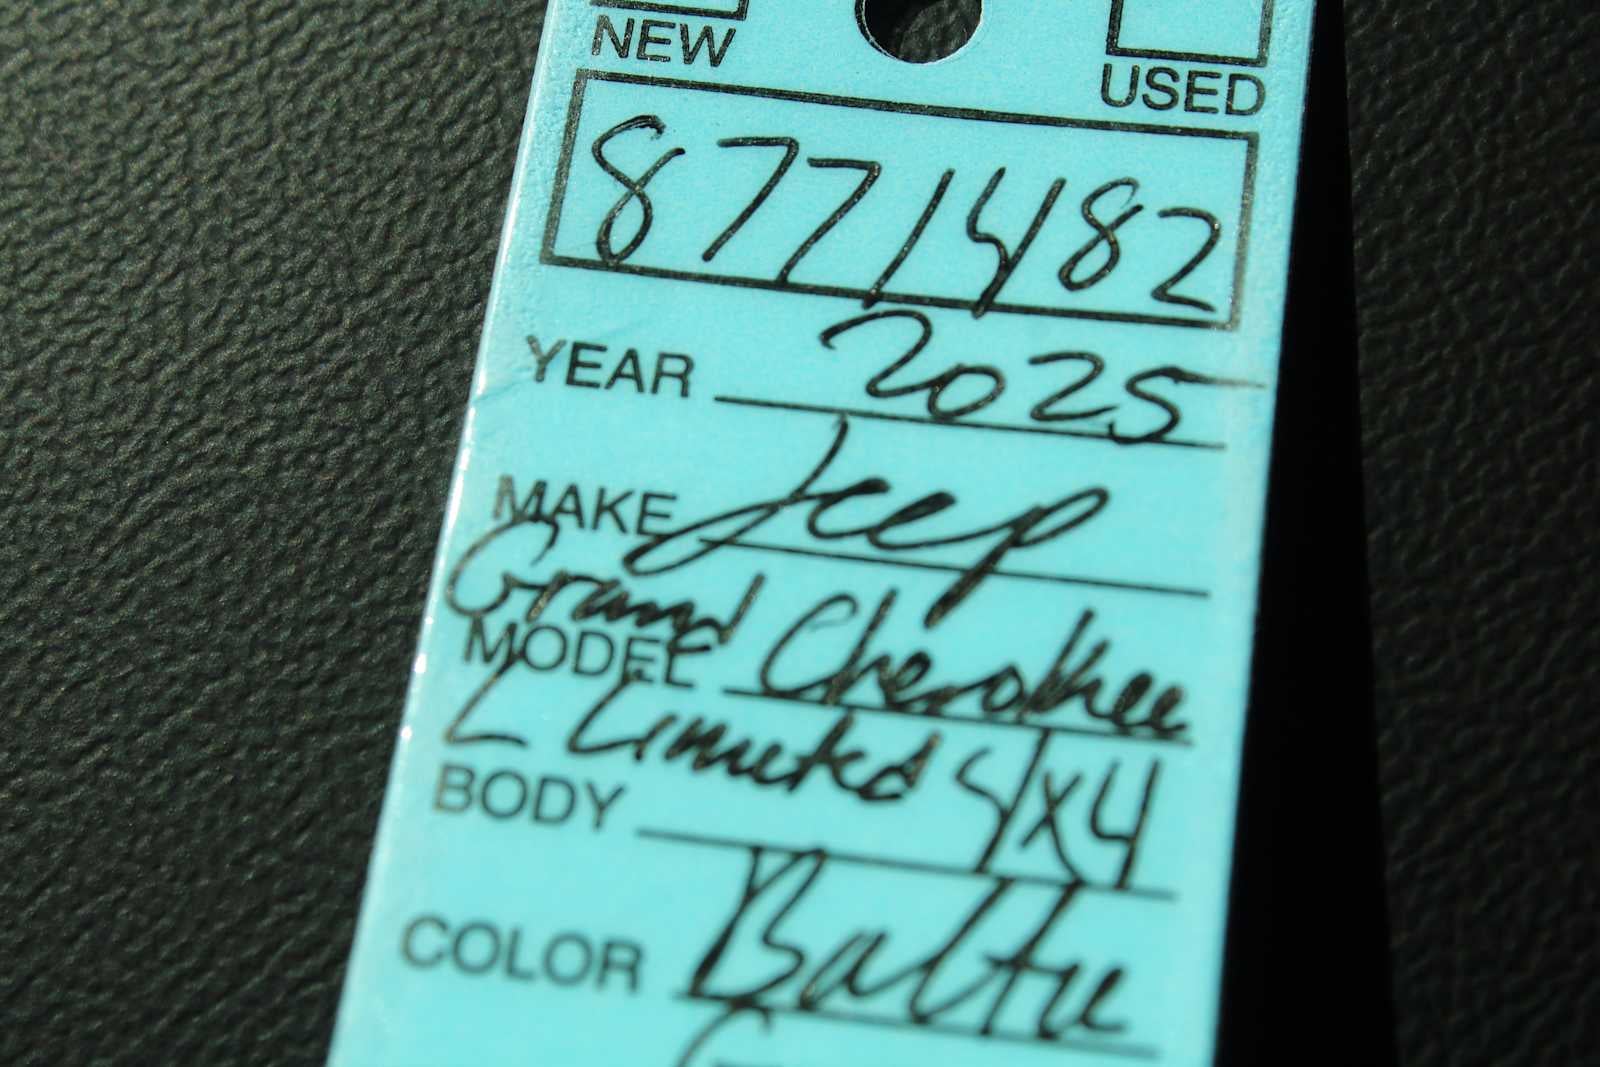 NEW USED
8771482
YEAR 2025
MAKE Jeep
Grand Cherokee
MODEL
L Limited 4x4
BODY
COLOR Baltic